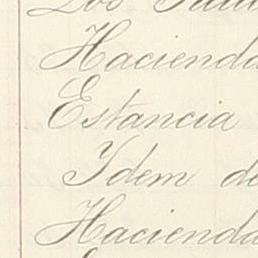 Los
Hacienda
Estancia
Ydem de
Hacienda